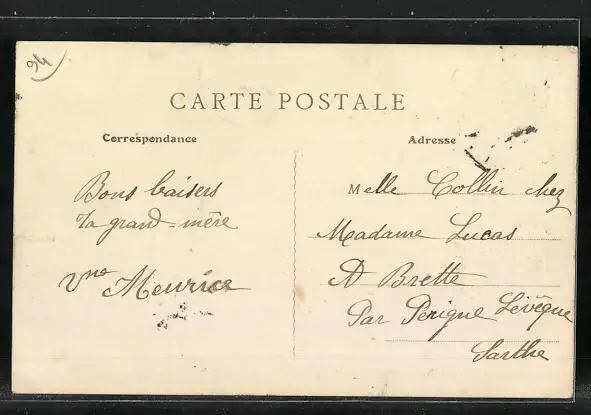 94
CARTE POSTALE
Correspondance
Adresse
Bons baisers
Ta grand mère
Vve Meurice
Melle Collin chez
Madame Lucas
A Brette
Par Périgne Lévêque
Sarthe